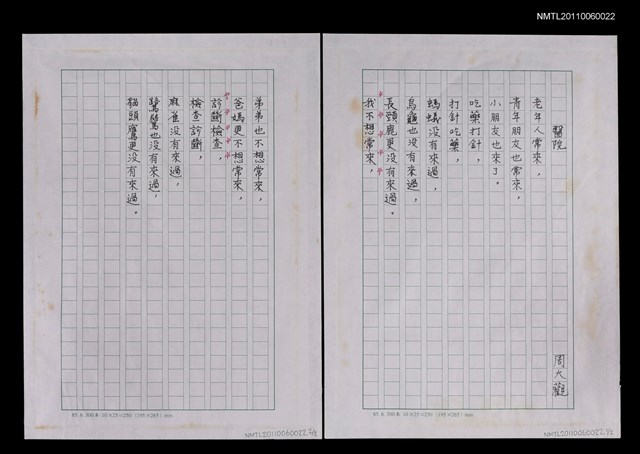 NMTL20110060022
醫院
周大觀
老年人常來，
青年朋友也常來，
小朋友也來了。
吃藥打針，
打針吃藥，
螞蟻沒有來過，
烏龜也沒有來過，
長頸鹿更沒有來過。
我不想常來，
85.6.300本 10×25=250 (195×265) mm
NMTL20110060022 1/2
弟弟也不想常來，
爸媽更不想常來，
診斷檢查，
檢查診斷，
麻雀沒有來過，
鷺鷥也沒有來過，
貓頭鷹更沒有來過。
85.6.300本 10×25=250 (195×265) mm
NMTL20110060022 2/2